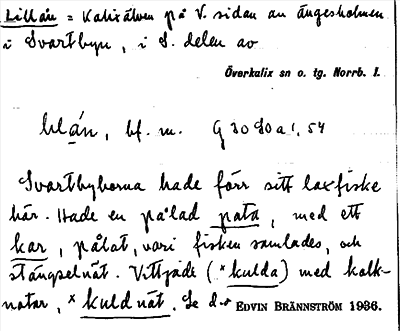 Lillån = Kalixälven på V. sidan av ängesholmen
i Svartbyn, i S. delen av
Överkalix sn o. tg. Norrb. l.
bf. m. G 30 S0 a 1, 54
Svartbyborna hade förr sitt laxfiske
här. Hade en pålad pata, med ett
kar, pålat, vari fisken samlades, och
stängselnät. Vittjade (×kulda) med kolk-
notar, ×kuldnät. Se d.o
EDVIN BRÄNNSTRÖM 1936.